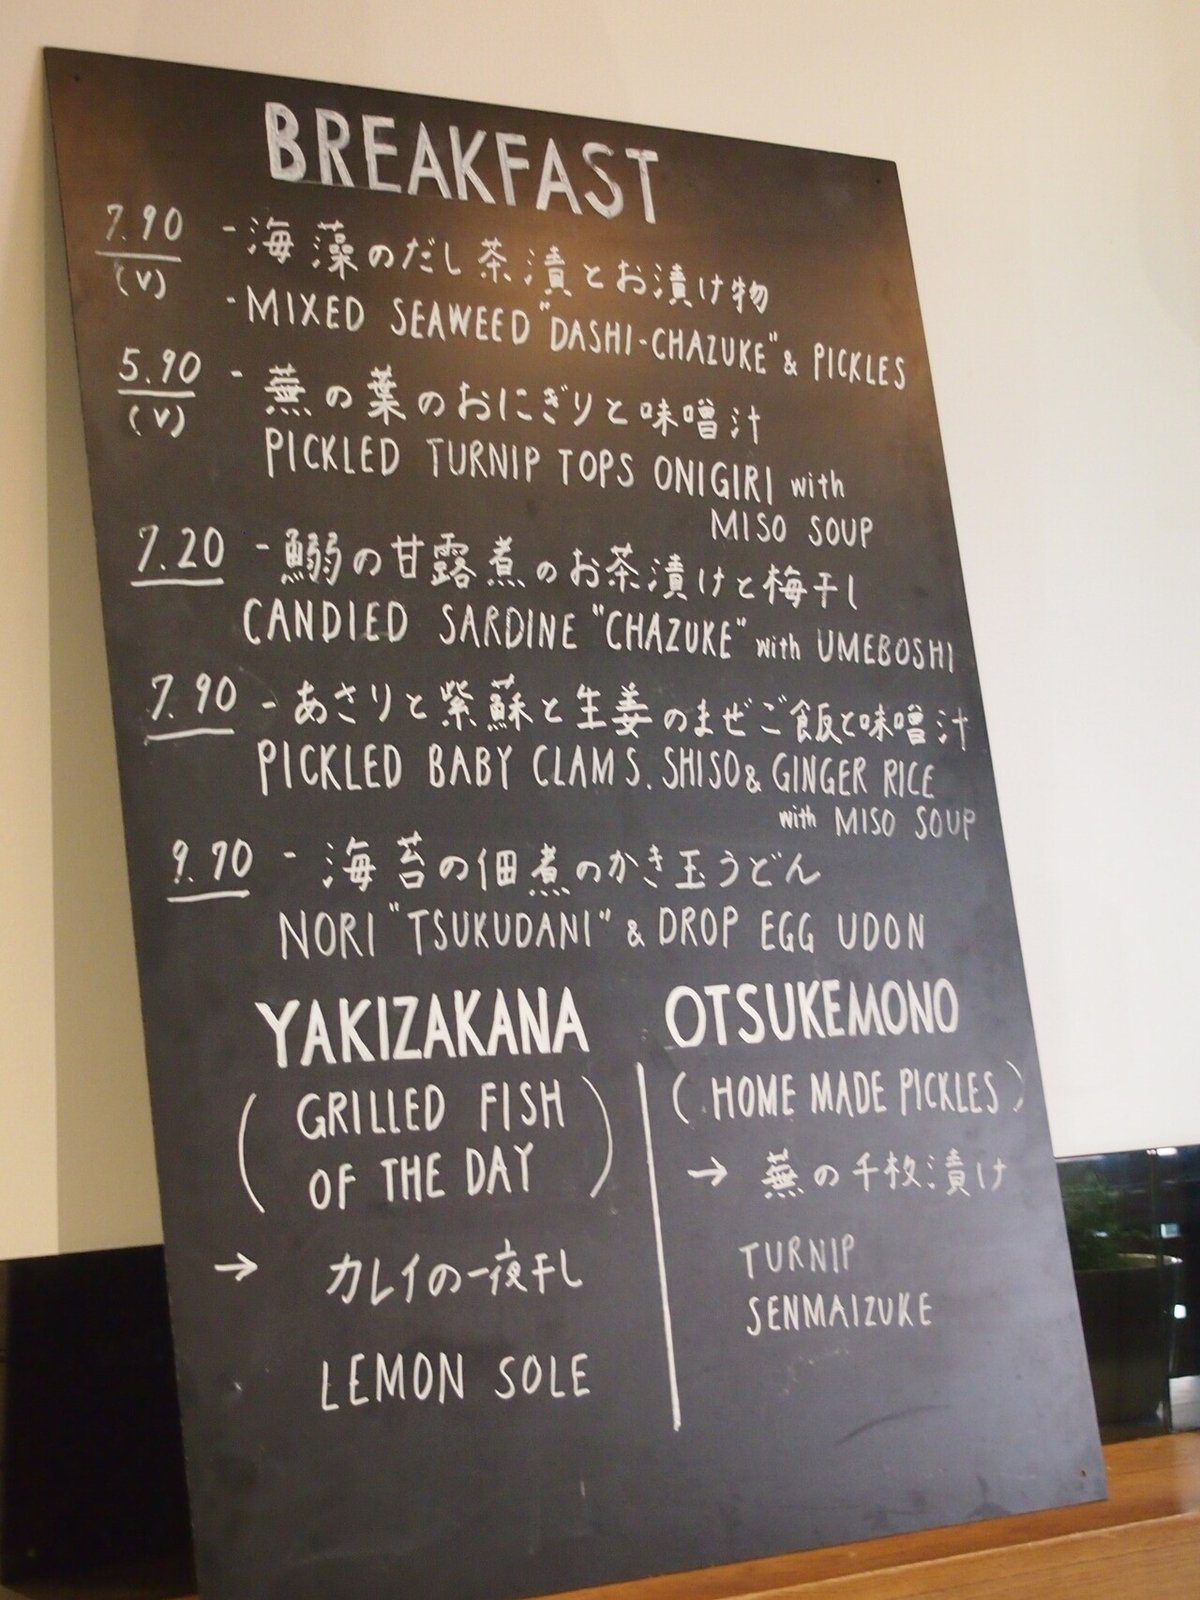 BREAKFAST
7.90 - 海藻のだし茶漬とお漬け物
(V) - MIXED SEAWEED "DASHI-CHAZUKE" & PICKLES
5.90 - 蕪の葉のおにぎりと味噌汁
(V) PICKLED TURNIP TOPS ONIGIRI with
MISO SOUP
7.20 - 鰯の甘露煮のお茶漬けと梅干し
CANDIED SARDINE "CHAZUKE" with UMEBOSHI
7.90 - あさりと紫蘇と生姜のまぜご飯と味噌汁
PICKLED BABY CLAMS. SHISO & GINGER RICE
with MISO SOUP
9.70 - 海苔の佃煮のかき玉うどん
NORI "TSUKUDANI" & DROP EGG UDON
YAKIZAKANA
(GRILLED FISH
OF THE DAY)
→ カレイの一夜干し
LEMON SOLE
OTSUKEMONO
(HOME MADE PICKLES)
→ 蕪の千枚漬け
TURNIP
SENMAIZUKE